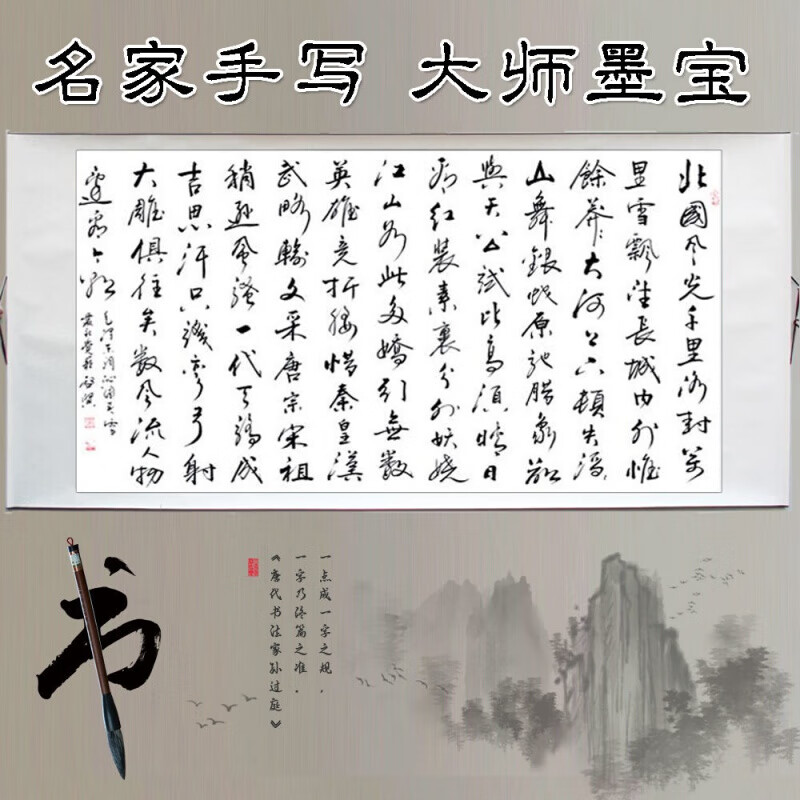 名家手写 大师墨宝
北國风光千里冰封萬
里雪飄望長城内外惟
餘莽莽大河上下頓失滔
山舞銀蛇原馳腊象欲
與天公試比高須晴日
看红装素裹分外妖娆
江山如此多嬌引無數
英雄竞折腰惜秦皇漢
武略輸文采唐宗宋祖
稍遜风骚一代天骄成
吉思汗只識彎弓射
大雕俱往矣数风流人物
還看今朝
毛澤東詞沁園春雪
书
一点成一字之规，
一字乃终篇之准。
《唐代书法家孙过庭》